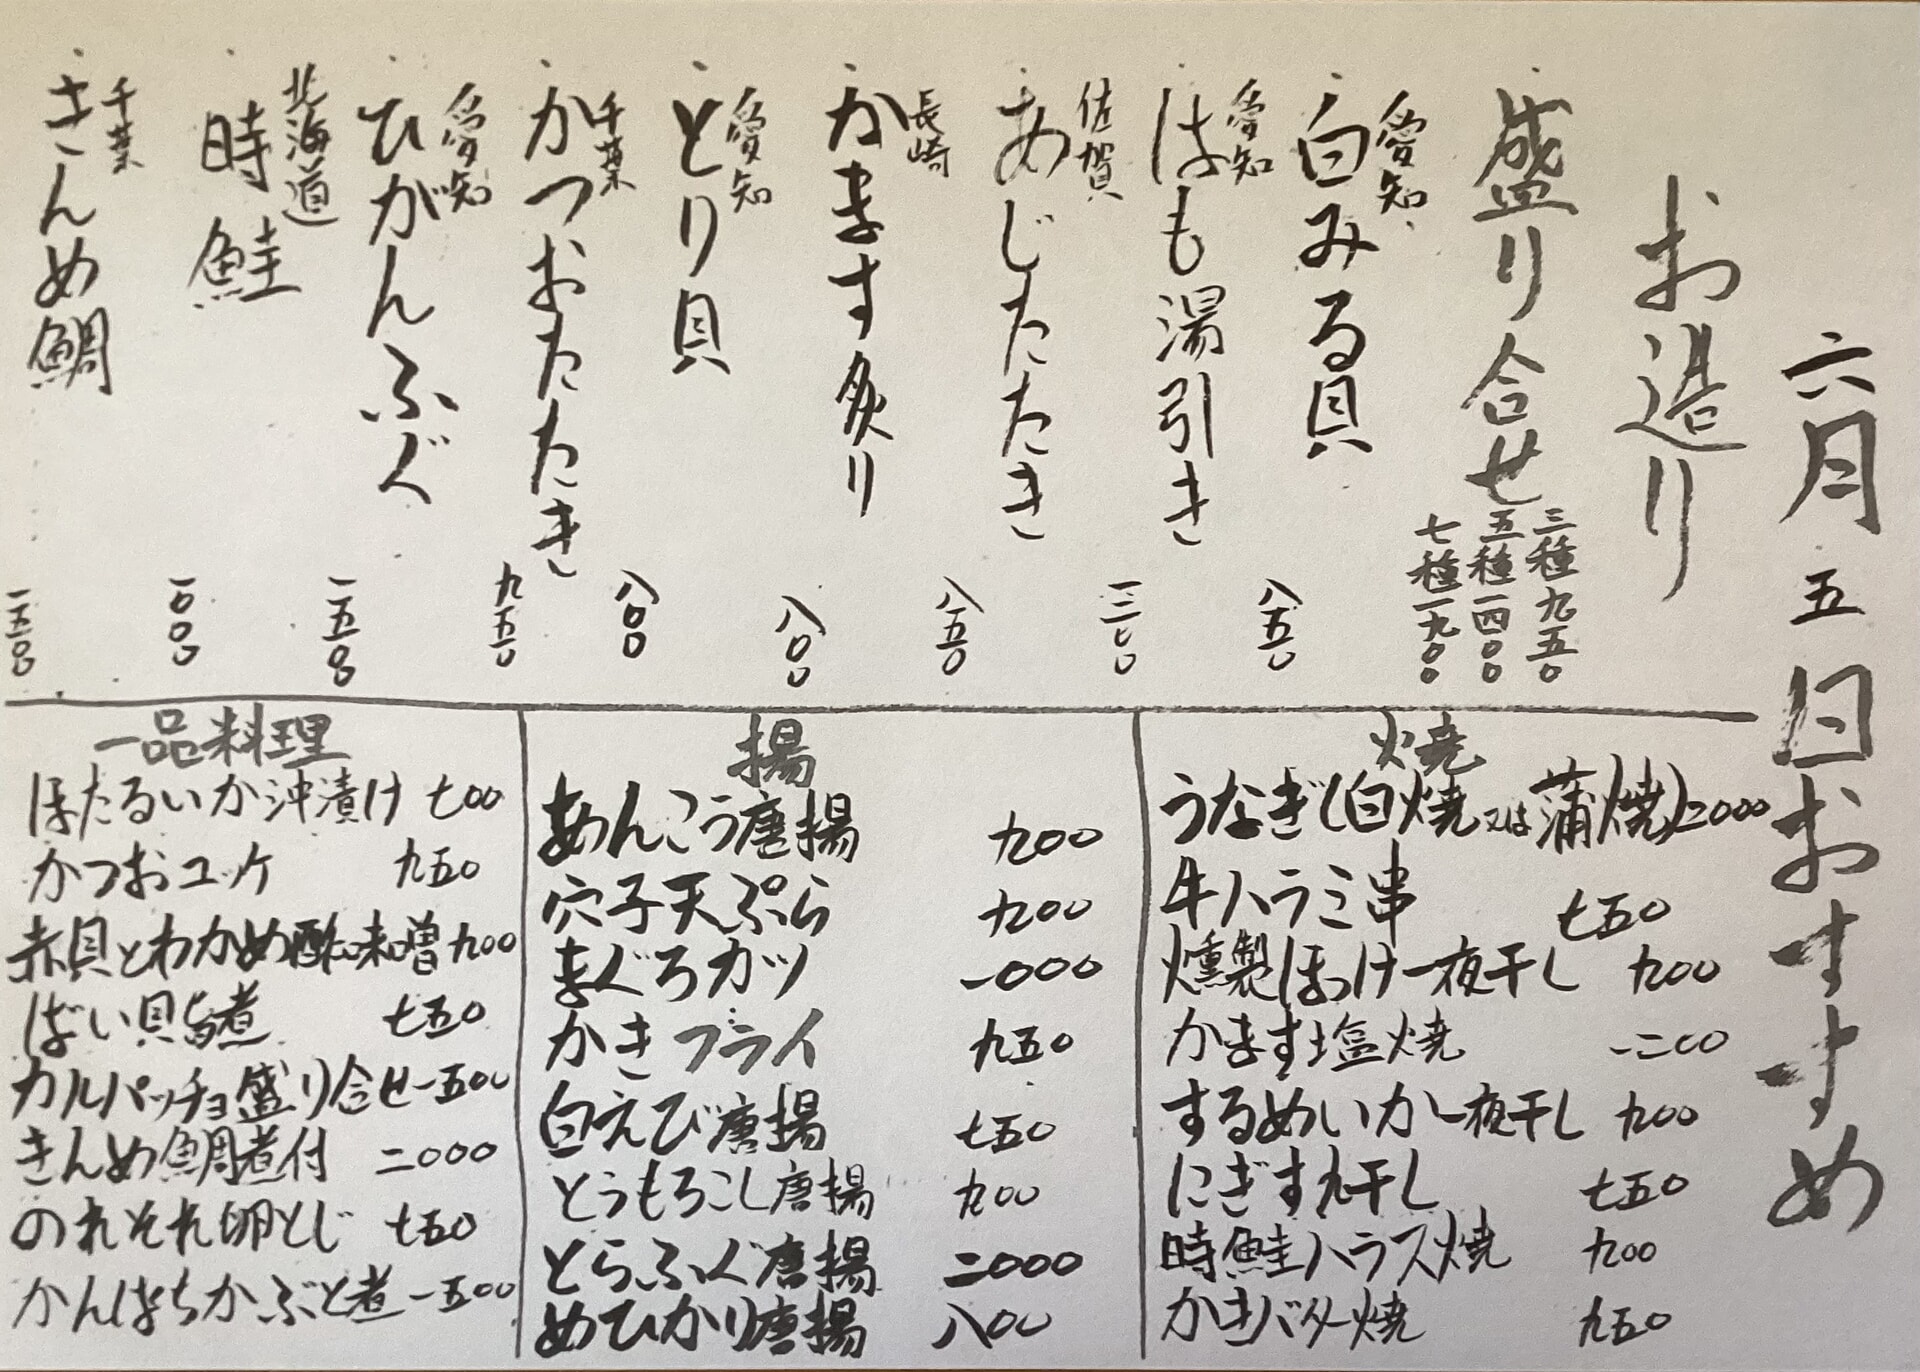 六月五日おすすめ
お造り
盛り合せ
三種九五〇
五種一四〇〇
七種一九〇〇
愛知
・白みる貝 八五〇
愛知
・はも湯引き 一二〇〇
佐賀
・あじたたき 八五〇
長崎
・かます炙り 八〇〇
愛知
・とり貝 八〇〇
千葉
・かつおたたき 九五〇
愛知
・ひがんふぐ 一五〇〇
北海道
・時鮭 一〇〇〇
千葉
・きんめ鯛 一五〇〇
焼
うなぎ(白焼又は蒲焼)二〇〇〇
牛ハラミ串 七五〇
燻製ほっけ一夜干し 九〇〇
かます塩焼 一二〇〇
するめいか一夜干し 九〇〇
にぎす丸干し 七五〇
時鮭ハラス焼 九〇〇
かきバター焼 九五〇
揚
あんこう唐揚 九〇〇
穴子天ぷら 九〇〇
まぐろカツ 一〇〇〇
かきフライ 九五〇
白えび唐揚 七五〇
とうもろこし唐揚 九〇〇
とらふぐ唐揚 二〇〇〇
めひかり唐揚 八〇〇
一品料理
ほたるいか沖漬け 七〇〇
かつおユッケ 九五〇
赤貝とわかめ酢味噌 九〇〇
ばい貝旨煮 七五〇
カルパッチョ盛り合せ 一五〇〇
きんめ鯛煮付 二〇〇〇
のれそれ卵とじ 七五〇
かんぱちかぶと煮 一五〇〇